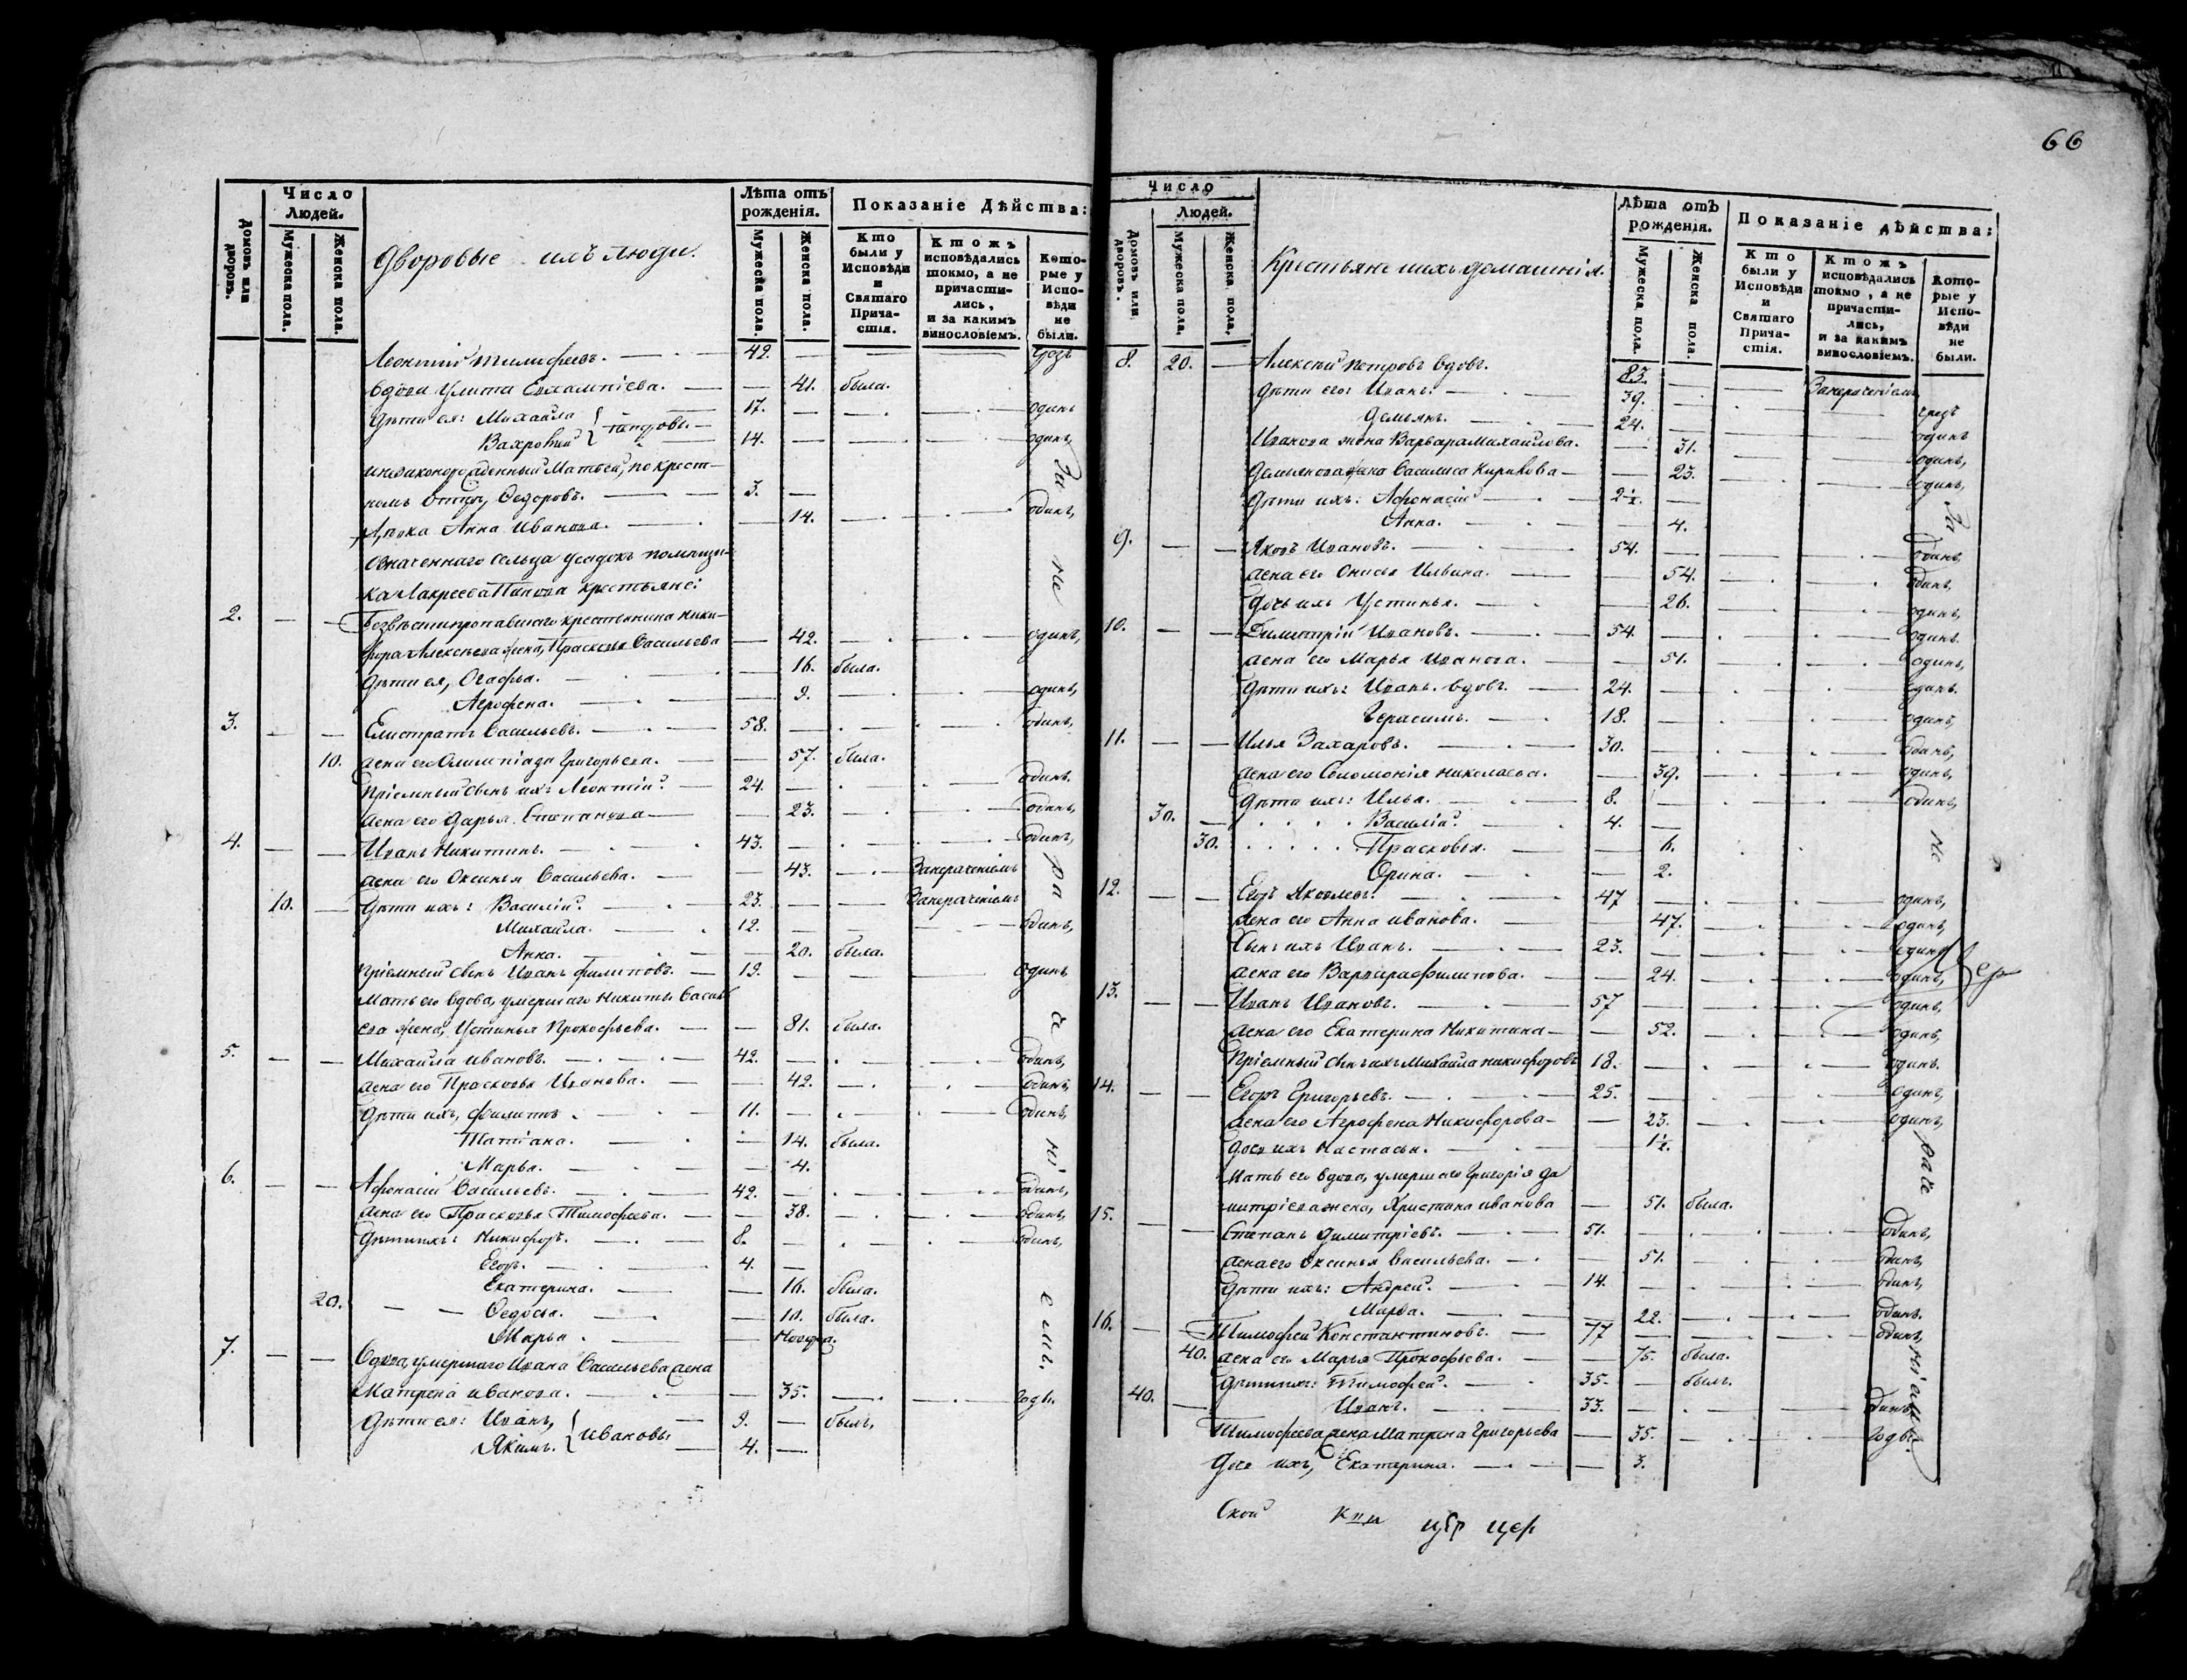 66
Число Людей.
Лѣта отъ рожденія.
Показаніе Дѣйства:
Домовъ или дворовъ.
Мужеска пола.
Женска пола.
Дворовые ихъ люди.
Мужеска пола.
Женска пола.
Кто были у Исповѣди и Святаго Причастія.
Ктожъ исповѣдались токмо, а не причастились, и за какимъ винословіемъ.
Которые у Исповѣди не были.
Леонтій 42.
вдова Улита 41. была.
дѣти ея: Михайла 17. одинъ
14. одинъ
незаконорожденный Матвей, по крест-
номъ отцу, Федоровъ. 3.
Анна Иванова. 14. одинъ,
означеннаго сельца помѣщи-
ка крестьяне:
2. безвѣстнопропавшаго крестьянина Ники-
фора Алексѣева жена, Прасковья Васильева 42. одинъ,
дѣти ея, Огафья. 16. была.
Агрофена. 9. одинъ,
3. Елистратъ Васильевъ. 58. одинъ,
10. жена его Олимпіада Григорьева. 57. была.
Пріемный сынъ ихъ Леонтій. 24. одинъ.
жена его Дарья Степанова 23. одинъ,
4. Иванъ Никитинъ. 43. одинъ,
жена его Оксинья Васильева. 43.
10. дѣти ихъ: Василій. 23.
Михайла. 12. одинъ,
Анна. 20. была.
Пріемный сынъ Иванъ Филиповъ. 19. одинъ
мать его вдова, умершаго Никиты Василь
ева жена, Устинья Прокофьева. 81. была.
5. Михайла Ивановъ. 42. одинъ,
жена его Прасковья Иванова. 42. одинъ,
дѣти ихъ, Филипъ. 11. одинъ,
Татіана. 14. была.
Марья. 4.
6. Афонасій Васильевъ. 42. одинъ,
жена его Прасковья Тимофеева. 38. одинъ,
дѣти ихъ: Никифоръ. 8. одинъ,
Егоръ. 4.
Екатерина. 16. была.
20. Федосья. 10. была.
Марья.
7. Вдова, умершаго Ивана Васильева жена
Матрена Иванова. 35. годы.
дѣти ея: Иванъ, 9. былъ,
Якимъ. } Ивановы 4.
За не ра че ні е мъ.
Число Людей.
Лѣта отъ рожденія.
Показаніе дѣйства:
Домовъ или дворовъ.
Мужеска пола.
Женска пола.
Крестьяне ихъ домашнія.
Мужеска пола.
Женска пола.
Кто были у Исповѣди и Святаго Причастія.
Ктожъ исповѣдались токмо, а не причастились, и за какимъ винословіемъ.
Которые у Исповѣди не были.
8. 20. Алексѣй Петровъ вдовъ. 83.
дѣти его: Иванъ. 39.
Демьянъ. 24. одинъ
Иванова жена Варвара Михайлова. 31. одинъ,
Демьянова жена Василиса Кирикова 23. одинъ,
дѣти ихъ: Афонасій 2½.
Анна. 4.
9. Яковъ Ивановъ. 54. одинъ,
жена его Онисья Ильина. 54. одинъ,
дочь ихъ Устинья. 26. одинъ,
10. Димитрій Ивановъ. 54. одинъ.
жена его Марья Иванова. 51. одинъ,
дѣти ихъ: Иванъ вдовъ. 24. одинъ.
Герасимъ. 18. одинъ,
11. Илья Захаровъ. 30. одинъ,
жена его Соломонія Николаева. 39. одинъ,
дѣти ихъ: Илья. 8. одинъ,
30. Василій. 4.
30. Прасковья. 6.
Орина. 2.
12. Егоръ Яковлевъ. 47 одинъ,
жена его Анна Иванова. 47. одинъ,
сынъ ихъ Иванъ. 23. одинъ
жена его Варвара Филипова. 24. одинъ,
13. Иванъ Ивановъ. 57 одинъ,
жена его Екатерина Никитина 52. одинъ,
Пріемный сынъ ихъ Михайла Никифоровъ 18. одинъ.
14. Егоръ Григорьевъ. 25. одинъ,
жена его Агрофена Никифорова 23. одинъ,
дочь ихъ Настасья. 1½.
мать его вдова, умершаго Григорія Ди
митріева жена, Христина Иванова 51. была.
15. Степанъ Димитріевъ. 51. одинъ,
жена его Оксинья Васильева. 51. одинъ,
дѣти ихъ: Андрей. 14. одинъ,
Марья. 22. одинъ.
16. Тимофей Константиновъ. 77 одинъ,
40. жена его Марья Прокофьева. 75. была.
дѣти ихъ: Тимофей. 35. былъ.
40. Иванъ. 33. одинъ,
Тимофеева жена Матрена Григорьева 35. годы.
дочь ихъ, Екатерина. 3.
За не раче ніемъ
Ской